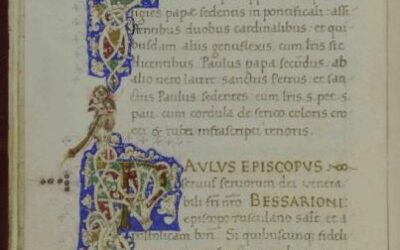 figies papæ sedentis in pontificali: assi
stentibus duobus cardinalibus: et qui
busdam aliis genuflexis cum lris sic
dicentibus Paulus papa secũdus. ab
alio vero latere sanctus Petrus. et san
ctus Paulus sedentes. cum lris s. pet. s.
pau. cum cordula de serico coloris cro
cei & rubei infrascripti tenoris.
PAULUS EPISCOPUS
seruus seruorum dei: venera
bili fr̃i nr̃o BESSARIONI:
episcopo tusculano salt̃. et a
postolicam ben̄. Si quibuscunq; fideli